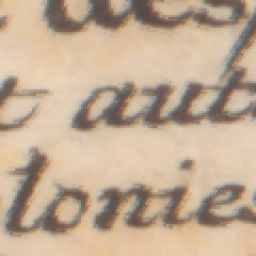 des
t aut
lonies